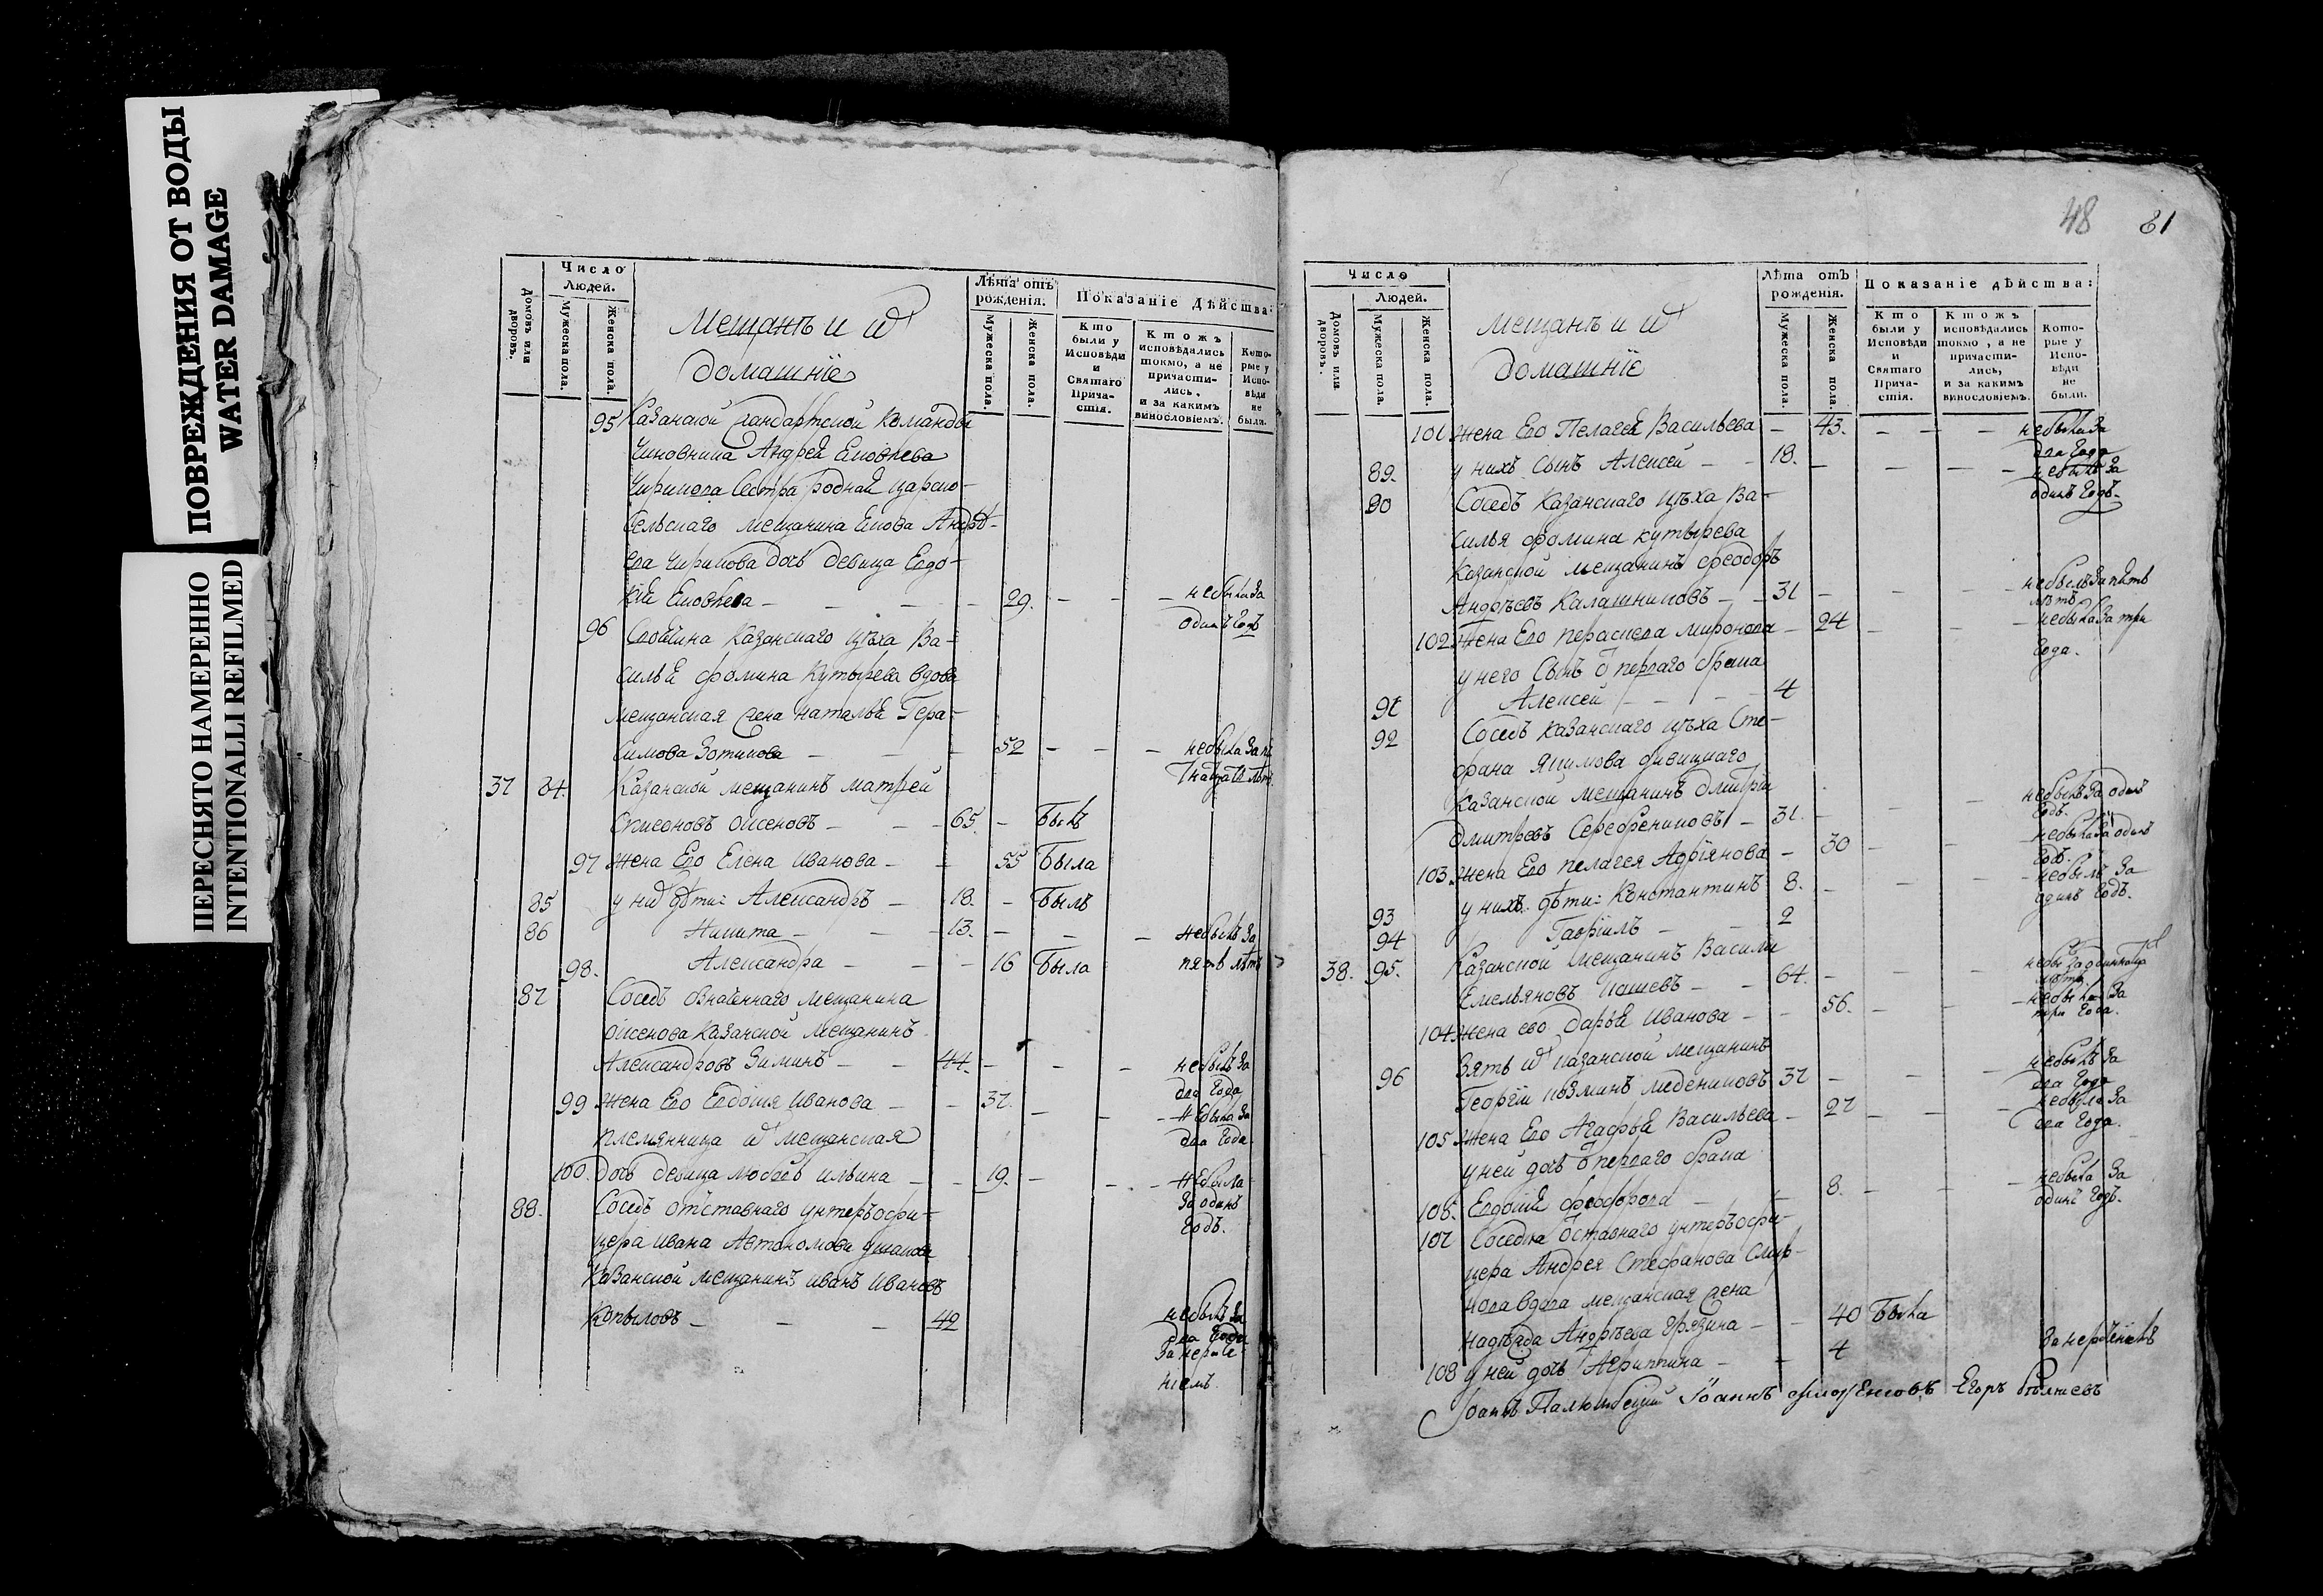 ПОВРЕЖДЕНИЯ ОТ ВОДЫ
WATER DAMAGE
ПЕРЕСНЯТО НАМЕРЕННО
INTENTIONALLI REFILMED
Домовъ или дворовъ.
Число Людей.
Мужеска пола.
Женска пола.
Мещанъ и
домашніе
Лѣта отъ рожденія.
Мужеска пола.
Женска пола.
Показаніе дѣйства:
Кто были у Исповѣди и Святаго Прича-стія.
Кто жъ исповѣдались токмо, а не причасти-лись, и за какимъ винословіемъ.
Кото-рые у Испо-вѣди не были.
95 Казанской команды
Чиновника Андрей
Чирикова Сестра родная царско-
сельскаго мещанина Андрѣ-
ева Чирикова дочь девица Евдо-
29. не была за
одинъ годъ
96 Казанскаго цѣха Ва-
силья Фомина Кутырева вдова
мещанская жена Наталья Гера-
симова Зотикова 52 не была за
37 84. Казанской мещанинъ Матфей
Симеоновъ 65. Былъ
97 Жена Его Елена Иванова 55 Была
85 у них дѣти: Александръ 18. Былъ
86 Никита 13. не былъ за
98. Александра 16 Была пять лѣтъ
87 Соседъ означеннаго мещанина
Казанской мещанинъ
Александровъ Зиминъ 44. не былъ за
два года
99 Жена Его Евдокия Иванова 37. не была за
племянница мещанская два года
100. дочь девица Любовь Ильина 19. не была
88. Соседъ отставнаго унтеръ офи- за одинъ
цера Ивана Автономова Ушакова годъ.
Казанской мещанинъ Иванъ Ивановъ
Копыловъ 42 не былъ за
два года
за нераче-
ніемъ.
48 81
Домовъ или дворовъ.
Число Людей.
Мужеска пола.
Женска пола.
Мещанъ и
домашніе
Лѣта отъ рожденія.
Мужеска пола.
Женска пола.
Показаніе дѣйства:
Кто были у Исповѣди и Святаго Прича-стія.
Кто жъ исповѣдались токмо, а не причасти-лись, и за какимъ винословіемъ.
Кото-рые у Испо-вѣди не были.
101 Жена Его Пелагея Васильева 43. не была за
два года
89. у нихъ сынъ Алексей 18. не былъ за
90 Соседъ Казанскаго цѣха Ва- одинъ годъ.
силья Фомина Кутырева
Казанской мещанинъ Феодоръ
Андрѣевъ Калашниковъ 31 не былъ за пять
лѣтъ
102 Жена Его Параскева Миронова 24 не была за три
у него сынъ перваго брака года.
91 Алексей 4
92 Соседъ Казанскаго цѣха Сте-
фана Якимова
Казанской мещанинъ Дмитрій
Дмитревъ Серебрениковъ 31. не былъ за одинъ
годъ.
103 Жена Его Пелагея Адріянова 30 не была за одинъ
годъ.
93 у нихъ дѣти: Константинъ 8. не былъ за
94 Гавріилъ 2 одинъ годъ.
38. 95. Казанской мещанинъ Василий
Емельяновъ 64.
лѣтъ
104 Жена его Дарья Иванова 56. не была за
три года.
96 Зять Казанской мещанинъ
Георгій Козминъ Медениковъ 37 не былъ за
два года
105 Жена Его Агафья Васильева 27 не была за
у ней дочь перваго брака два года.
106. Евдокия Феодорова 8. не была за
107 Соседка отставнаго унтеръ офи- одинъ годъ.
цера Андрея Стефанова Смир-
нова вдова мещанская жена
Надежда Андрѣева Грязина 40 Была
108 у ней дочь Агриппина 4 за нераченіемъ
Іоаннъ Іоаннъ Егоръ